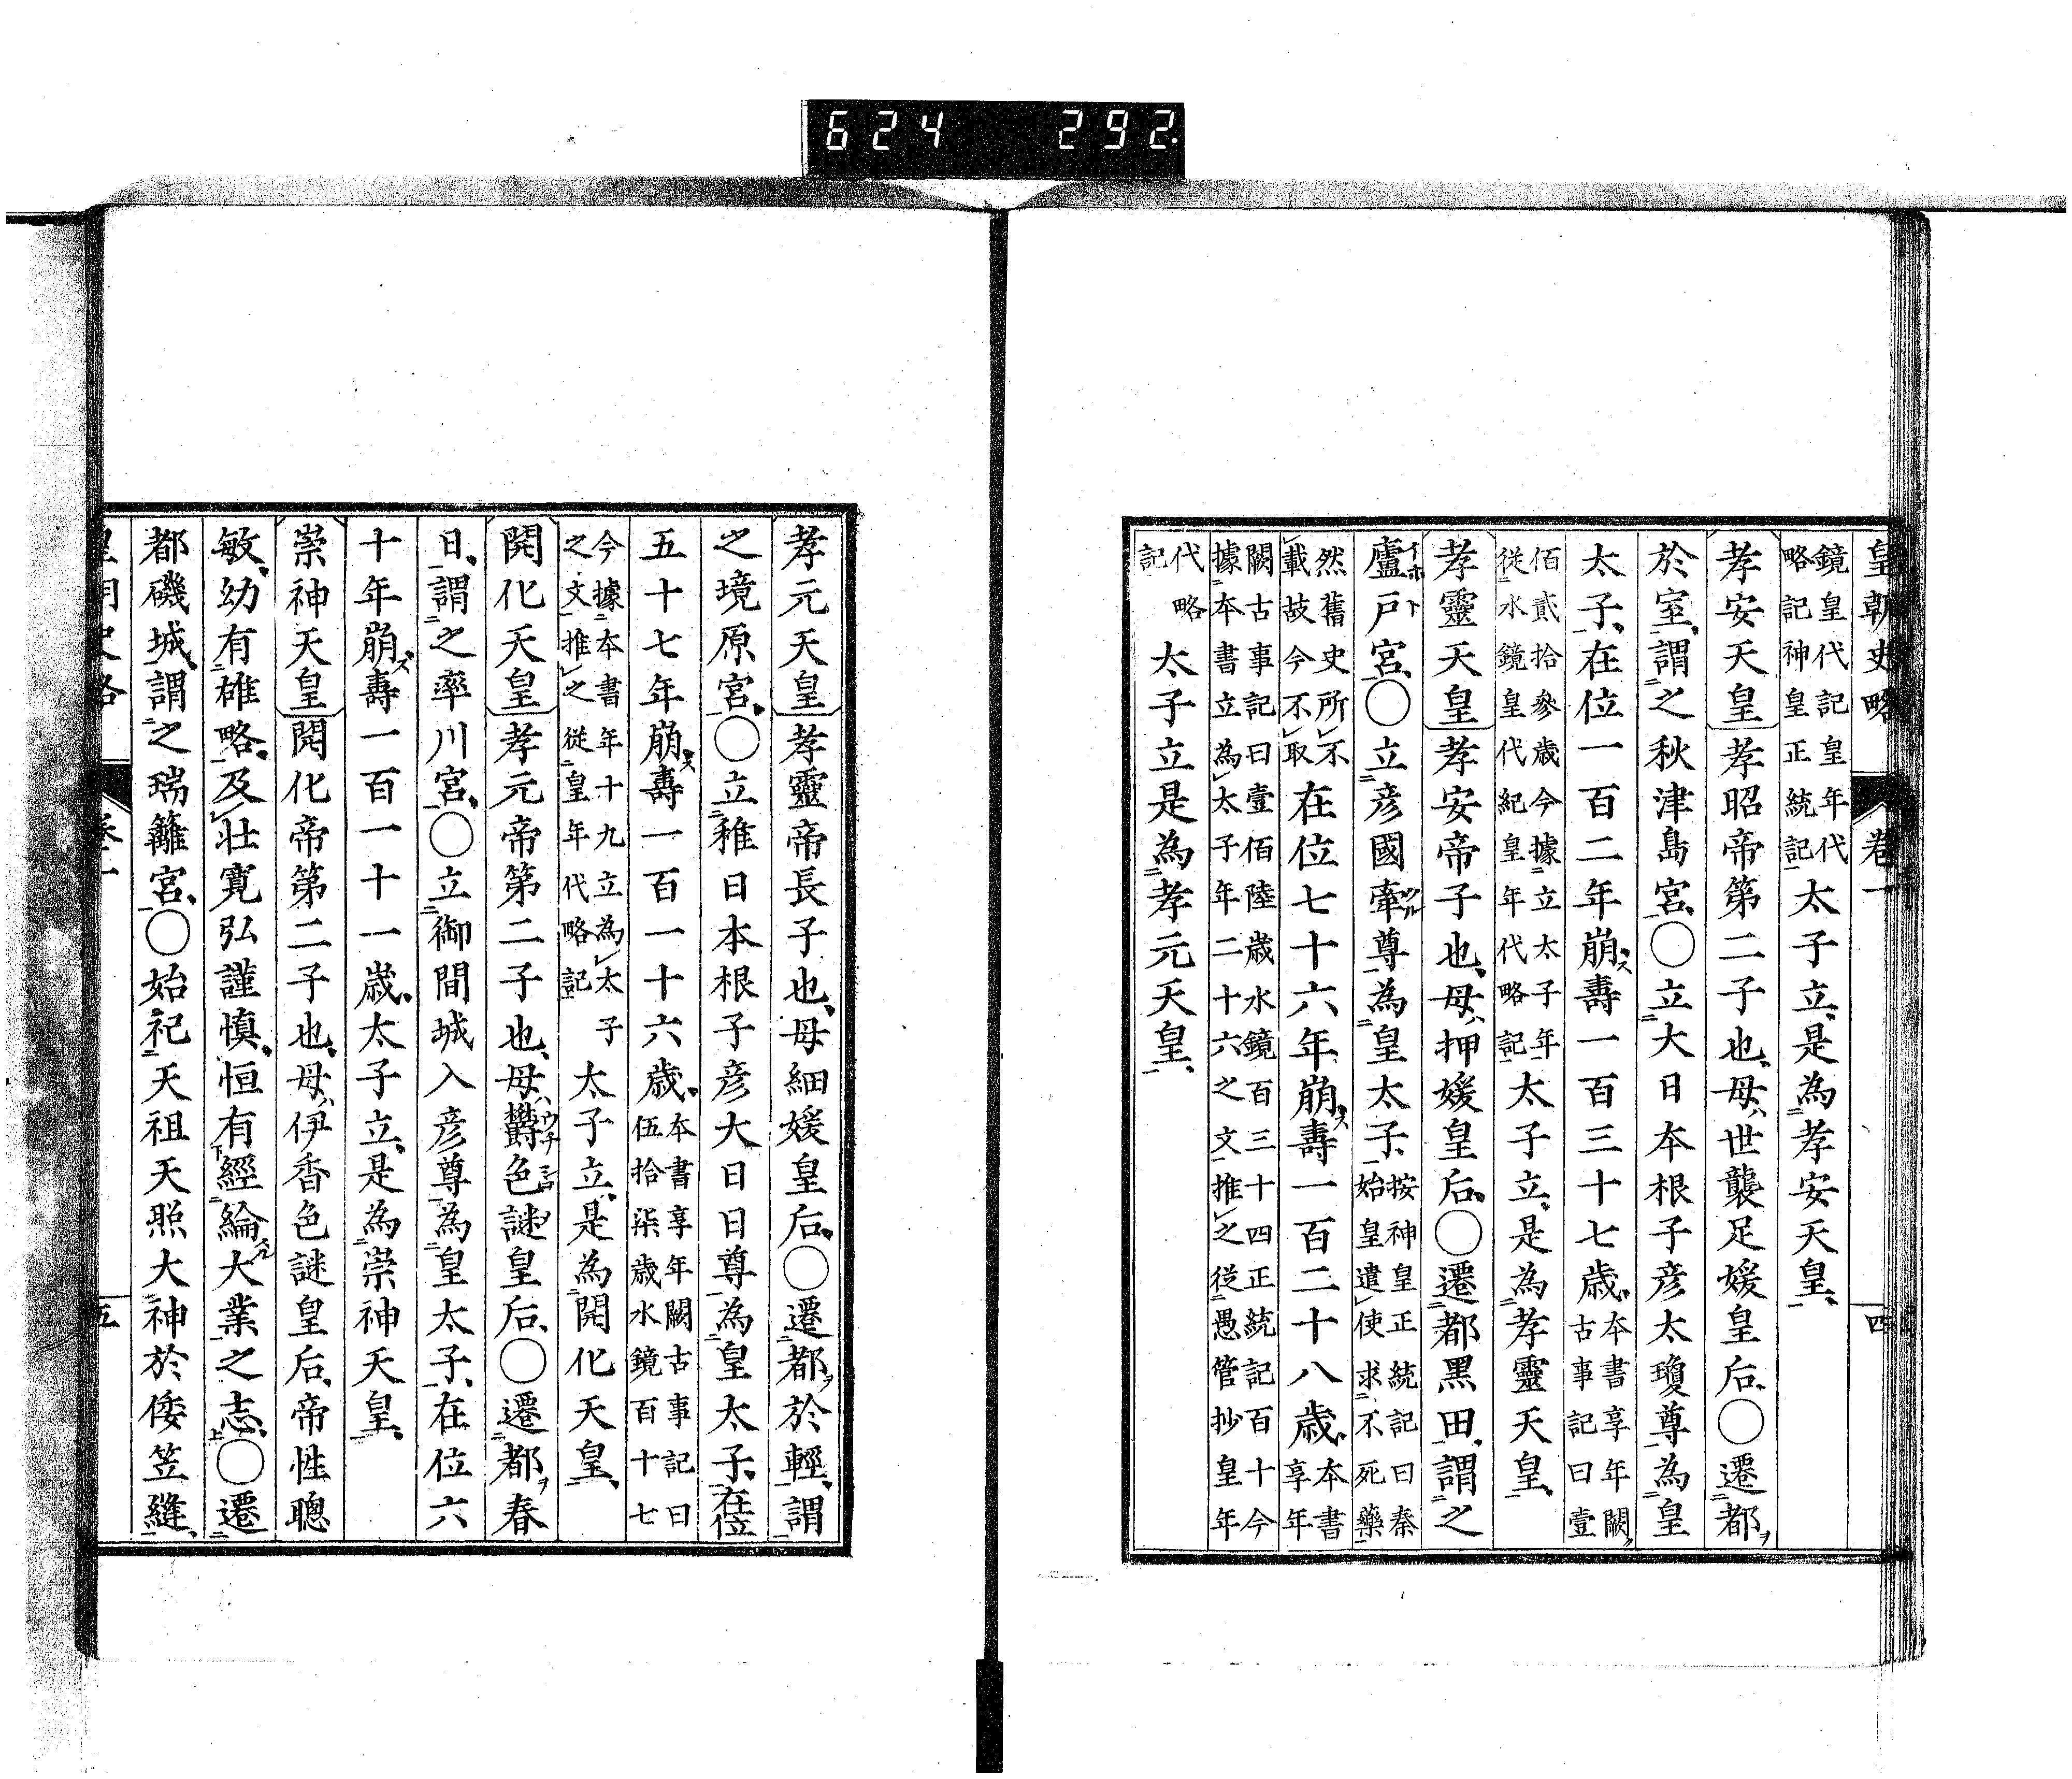 624 292.
皇朝史略 卷一 四
鏡皇代記皇年代
略記神皇正統記太子立、是為孝安天皇、
孝安天皇孝昭帝第二子也、母ハ世襲足媛皇后、○遷都ヲ
於室、謂之秋津島宮、○立大日本根子彦太瓊尊為皇
太子、在位一百二年崩ス、壽一百三十七歳、本書享年闕
古事記曰壹
佰貳拾參歳今據立太子年
從水鏡皇代紀皇年代略記太子立、是為孝靈天皇、
孝靈天皇孝安帝子也、母ハ押媛皇后、○遷都黒田、謂之
廬戸宮、○立彦國牽尊為皇太子、按神皇正統記曰秦
始皇遣使求不死藥
然舊史所不
載故今不取在位七十六年、崩ス壽一百二十八歳、本書
享年
闕古事記曰壹佰陸歳水鏡百三十四正統記百十今
據本書立為太子年二十六之文推之從愚管抄皇年
代略
記太子立是為孝元天皇、
孝元天皇孝靈帝長子也、母細媛皇后、○遷都ヲ於輕、謂
之境原宮、○立稚日本根子彦大日日尊為皇太子、在位
五十七年崩ス、壽一百一十六歳、本書享年闕古事記曰
伍拾柒歳水鏡百十七
今據本書年十九立為太子
之文推之從皇年代略記太子立、是為開化天皇、
開化天皇孝元帝第二子也、母ハ欝色謎皇后、○遷都ヲ春
日、謂之率川宮、○立御間城入彦尊為皇太子、在位六
十年崩ス、壽一百一十一歳、太子立、是為崇神天皇、
崇神天皇開化帝第二子也、母ハ伊香色謎皇后、帝性聰
敏、幼有雄略、及壯寛弘謹慎、恒有經綸スル大業之志、○遷
都磯城、謂之瑞籬宮、○始祀天祖天照大神於倭笠縫、
皇朝史略 卷一 五